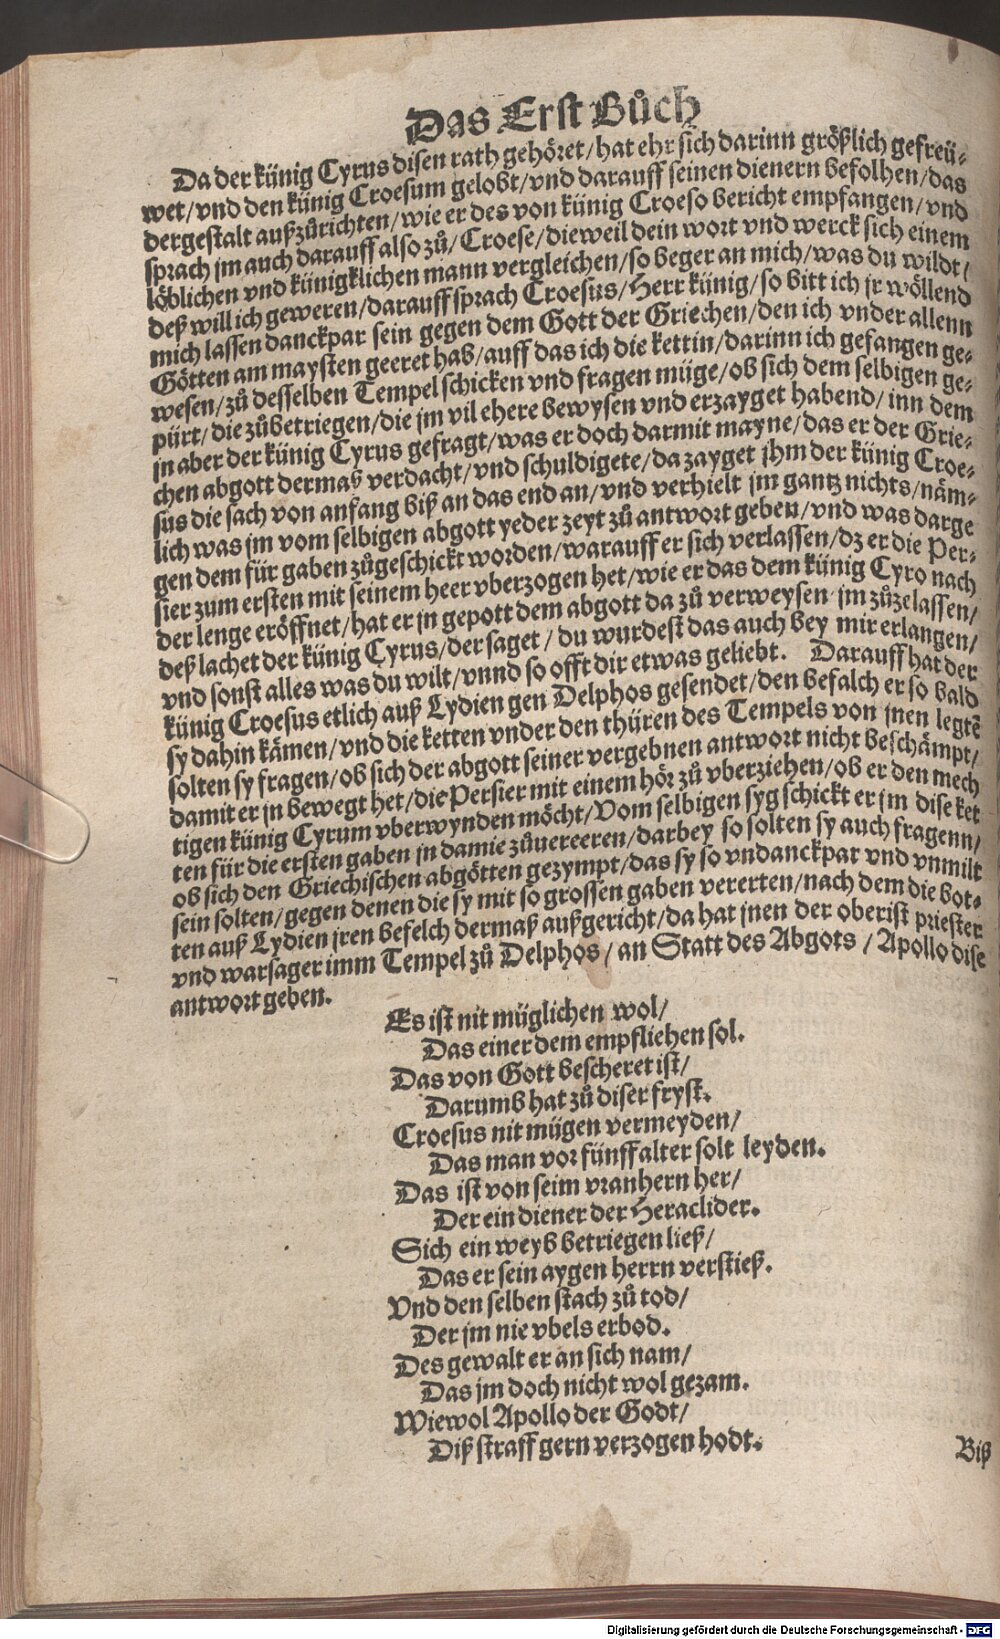 Das Erst Bůch
Da der künig Cyrus disen rath gehöret/hat ehr sich darinn größlich gefreü-
wet/vnd den künig Croesum gelobt/vnd darauff seinen dienern befolhen/das
dergestalt außzůrichten/wie er des von künig Croeso bericht empfangen/vnd
sprach jm auch darauff also zů/Croese/dieweil dein wort vnd werck sich einem
löblichen vnd künigklichen mann vergleichen/so beger an mich/was du wildt/
deß will ich geweren/darauff sprach Croesus/Herr künig/so bitt ich jr wöllend
mich lassen danckpar sein gegen dem Gott der Griechen/den ich vnder allenn
Götten am maysten geeret hab/auff das ich die kettin/darinn ich gefangen ge-
wesen/zů desselben Tempel schicken vnd fragen müge/ob sich dem selbigen ge-
pürt/die zůbetriegen/die jm vil ehere bewysen vnd erzayget habend/inn dem
jn aber der künig Cyrus gefragt/was er doch darmit mayne/das er der Grie-
chen abgott dermaß verdacht/vnd schuldigete/da zayget jhm der künig Croe-
sus die sach von anfang biß an das end an/vnd verhielt jm gantz nichts/näm-
lich was jm vom selbigen abgott yeder zeyt zů antwort geben/vnd was darge
gen dem für gaben zůgeschickt worden/warauff er sich verlassen/dz er die Per-
sier zum ersten mit seinem heer vberzogen het/wie er das dem künig Cyro nach
der lenge eröffnet/hat er jn gepott dem abgott da zů verweysen jm zůzelassen/
deß lachet der künig Cyrus/der saget/du wurdest das auch bey mir erlangen/
vnd sonst alles was du wilt/vnnd so offt dir etwas geliebt. Darauff hat der
künig Croesus etlich auß Lydien gen Delphos gesendet/den befalch er so bald
sy dahin kämen/vnd die ketten vnder den thüren des Tempels von jnen legtẽ
solten sy fragen/ob sich der abgott seiner vergebnen antwort nicht beschämpt/
damit er jn bewegt het/die Persier mit einem hör zů vberziehen/ob er den mech
tigen künig Cyrum vberwynden möcht/Vom selbigen syg schickt er jm dise ket
ten für die ersten gaben jn damie zůuereeren/darbey so solten sy auch fragenn/
ob sich den Griechischen abgötten gezympt/das sy so vndanckpar vnd vnmilt
sein solten/gegen denen die sy mit so grossen gaben vererten/nach dem die bot-
ten auß Lydien jren befelch dermaß außgericht/da hat jnen der oberist priester
vnd warsager imm Tempel zů Delphos/an Statt des Abgots/Apollo dise
antwort geben.
Es ist nit müglichen wol/
Das einer dem empfliehen sol.
Das von Gott bescheret ist/
Darumb hat zů diser fryst.
Croesus nit mügen vermeyden/
Das man vor fünff alter solt leyden.
Das ist von seim vranhern her/
Der ein diener der Heraclider.
Sich ein weyb betriegen ließ/
Das er sein aygen herrn verstieß.
Vnd den selben stach zů tod/
Der jm nie vbels erbod.
Des gewalt er an sich nam/
Das jm doch nicht wol gezam.
Wiewol Apollo der Godt/
Diß straff gern verzogen hodt.
Biß
Digitalisierung gefördert durch die Deutsche Forschungsgemeinschaft - DFG